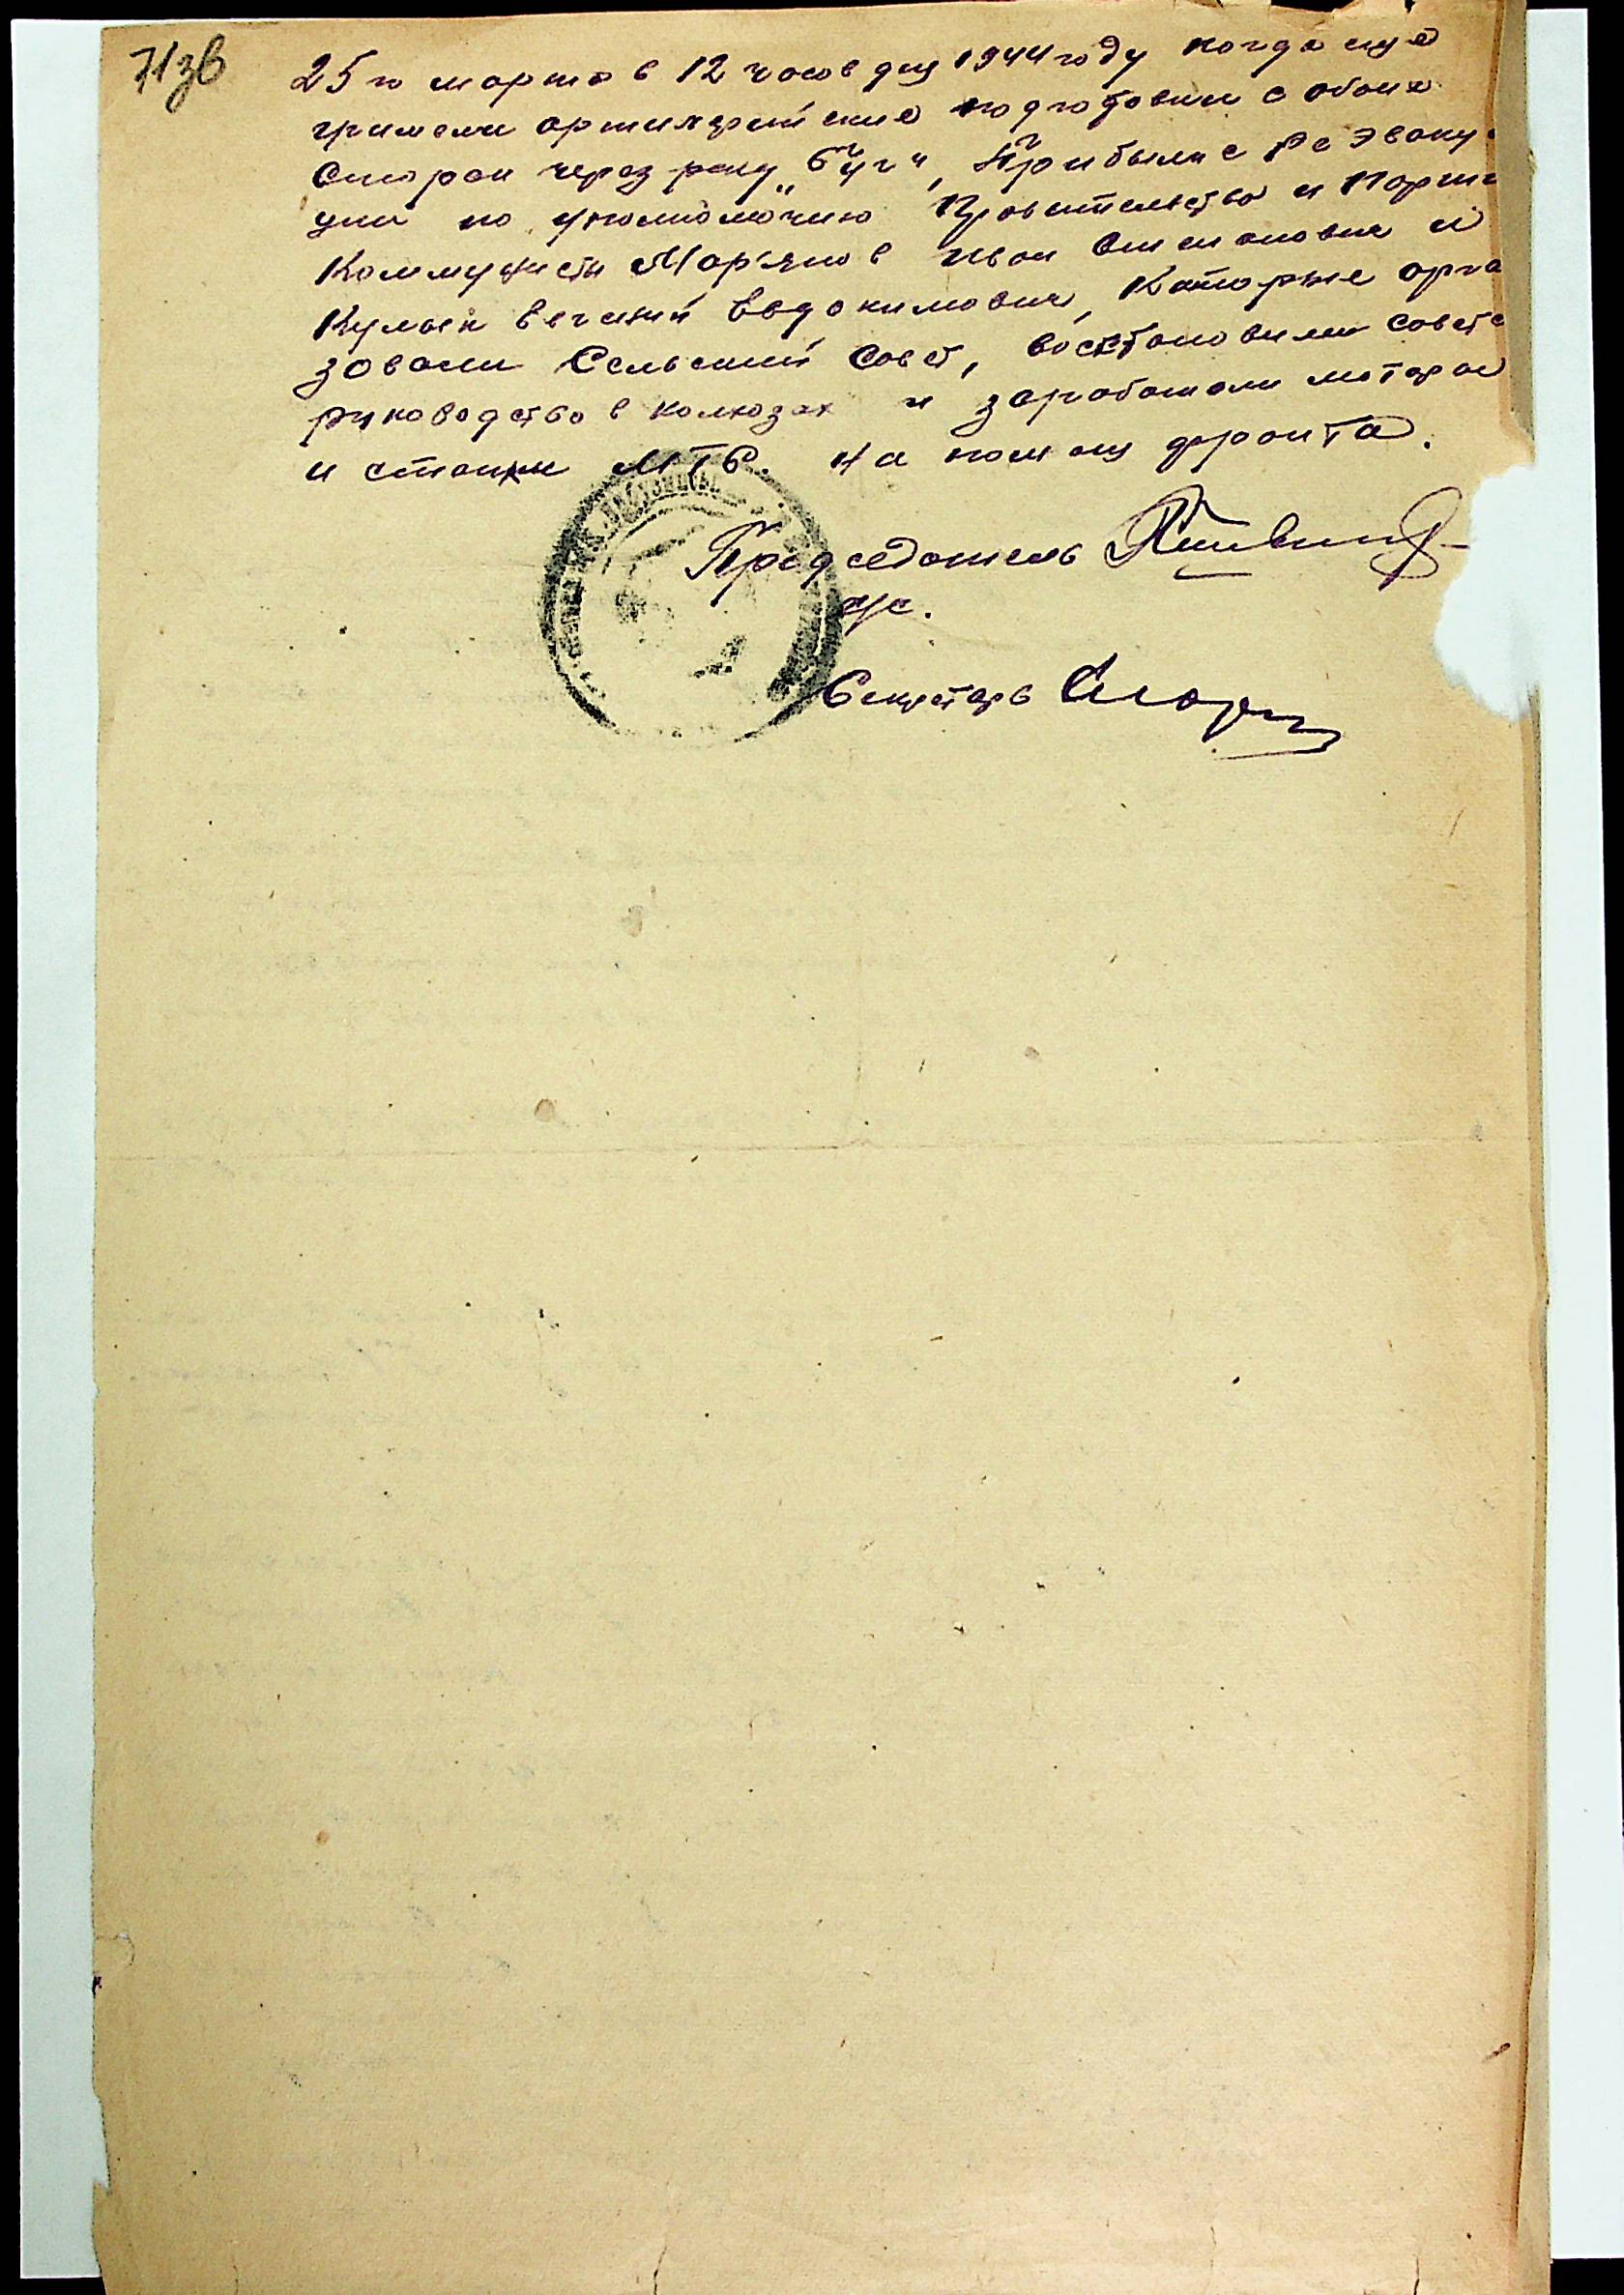 71зв
25го марта в 12 часов дня 1944 году когда еще
гримели артилерийские подготовки с обоих
Сторон через реку „Буг“, Прибыли с Ре Эваку
ции по уполномочию Правительства и Парти
Коммунисты Мар'янов Иван Степанович и
Евгений Евдокимович, Каторые орга
зовали Сельский Совет, восстановили советс
руководство в колхозах и заработали моторы
и станки МТС. На помощ фронта.
Председатель
с/с.
Секретарь